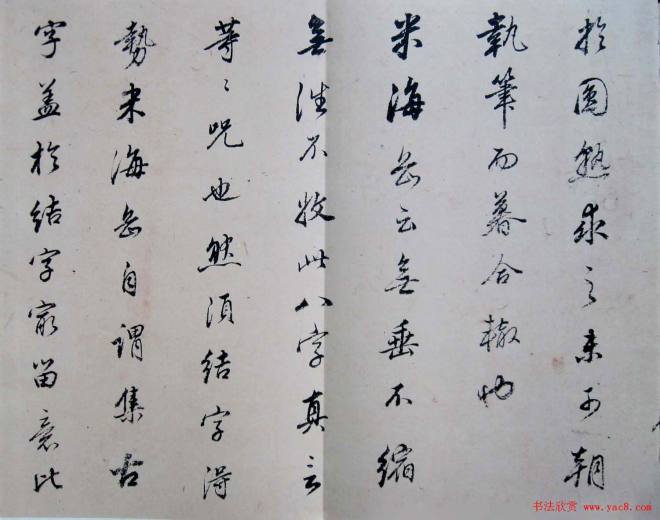 於圓熟求之未可朝
執筆而暮合轍也
米海岳云無垂不縮
無往不收此八字真言
等〻呪也然須結字得
勢米海岳自謂集古
字蓋於結字最留意比
书法欣赏 www.yac8.com